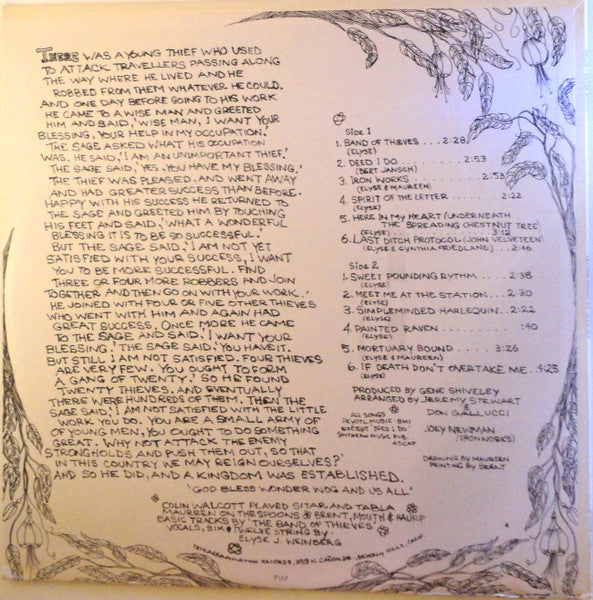 THERE WAS A YOUNG THIEF WHO USED
TO ATTACK TRAVELLERS PASSING ALONG
THE WAY WHERE HE LIVED AND HE
ROBBED FROM THEM WHATEVER HE COULD.
AND ONE DAY BEFORE GOING TO HIS WORK
HE CAME TO A WISE MAN AND GREETED
HIM AND SAID, 'WISE MAN, I WANT YOUR
BLESSING, YOUR HELP IN MY OCCUPATION.'
THE SAGE ASKED WHAT HIS OCCUPATION
WAS. HE SAID, 'I AM AN UNIMPORTANT THIEF.'
THE SAGE SAID, 'YES, YOU HAVE MY BLESSING.'
THE THIEF WAS PLEASED, AND WENT AWAY
AND HAD GREATER SUCCESS THAN BEFORE.
HAPPY WITH HIS SUCCESS HE RETURNED TO
THE SAGE AND GREETED HIM BY TOUCHING
HIS FEET AND SAID, 'WHAT A WONDERFUL
BLESSING IT IS TO BE SO SUCCESSFUL.'
BUT THE SAGE SAID, 'I AM NOT YET
SATISFIED WITH YOUR SUCCESS, I WANT
YOU TO BE MORE SUCCESSFUL. FIND
THREE OR FOUR MORE ROBBERS AND JOIN
TOGETHER AND THEN GO ON WITH YOUR WORK.'
HE JOINED WITH FOUR OR FIVE OTHER THIEVES
WHO WENT WITH HIM AND AGAIN HAD
GREAT SUCCESS. ONCE MORE HE CAME
TO THE SAGE AND SAID, 'I WANT YOUR
BLESSING.' THE SAGE SAID, 'YOU HAVE IT.
BUT STILL I AM NOT SATISFIED. FOUR THIEVES
ARE VERY FEW. YOU OUGHT TO FORM
A GANG OF TWENTY.' SO HE FOUND
TWENTY THIEVES, AND EVENTUALLY
THERE WERE HUNDREDS OF THEM. THEN THE
SAGE SAID, 'I AM NOT SATISFIED WITH THE LITTLE
WORK YOU DO. YOU ARE A SMALL ARMY OF
OF YOUNG MEN, YOU OUGHT TO DO SOMETHING
GREAT. WHY NOT ATTACK THE ENEMY
STRONGHOLDS AND PUSH THEM OUT, SO THAT
IN THIS COUNTRY WE MAY REIGN OURSELVES?'
AND SO HE DID, AND A KINGDOM WAS ESTABLISHED.
'GOD BLESS WONDER WOG AND US ALL'
COLIN WALCOTT PLAYED SITAR AND TABLA
MAUREEN ON THE SPOONS & BRENT, MOUTH & HAURP
BASIC TRACKS BY 'THE BAND OF THIEVES'
VOCALS, SIX & TWELVE STRING BY-
ELYSE J. WEINBERG
SIDE 1
1. BAND OF THIEVES . . . 2:28
(ELYSE)
2. DEED I DO . . . 2:53
(BERT JANSCH)
3. IRON WORKS . . . 2:53
(ELYSE & MAUREEN)
4. SPIRIT OF THE LETTER . . . 2:22
(ELYSE)
5. HERE IN MY HEART (UNDERNEATH
THE SPREADING CHESTNUT TREE)
(ELYSE) . . . 3:12
6. LAST DITCH PROTOCOL (JOHN VELVETEEN)
(ELYSE & CYNTHIA FRIEDLAND) . . . 2:46
SIDE 2
1. SWEET POUNDING RYTHM . . . 2:38
(ELYSE)
2. MEET ME AT THE STATION . . . 2:30
(ELYSE)
3. SIMPLEMINDED HARLEQUIN . . . 2:22
(ELYSE)
4. PAINTED RAVEN . . . :40
(ELYSE)
5. MORTUARY BOUND . . . 3:26
(ELYSE & MAUREEN)
6. IF DEATH DON'T OVERTAKE ME . 4:25
(ELYSE)
PRODUCED BY GENE SHIVELEY
ARRANGED BY JEREMY STEWART
DON GALLUCCI
JOEY NEWMAN
(IRONWORKS)
ALL SONGS
PEYOTL MUSIC · BMI
EXCEPT DEED I DO
SOUTHERN MUSIC PUB.
ASCAP
DRAWING BY MAUREEN
PRINTING BY BRENT
RECORDS,